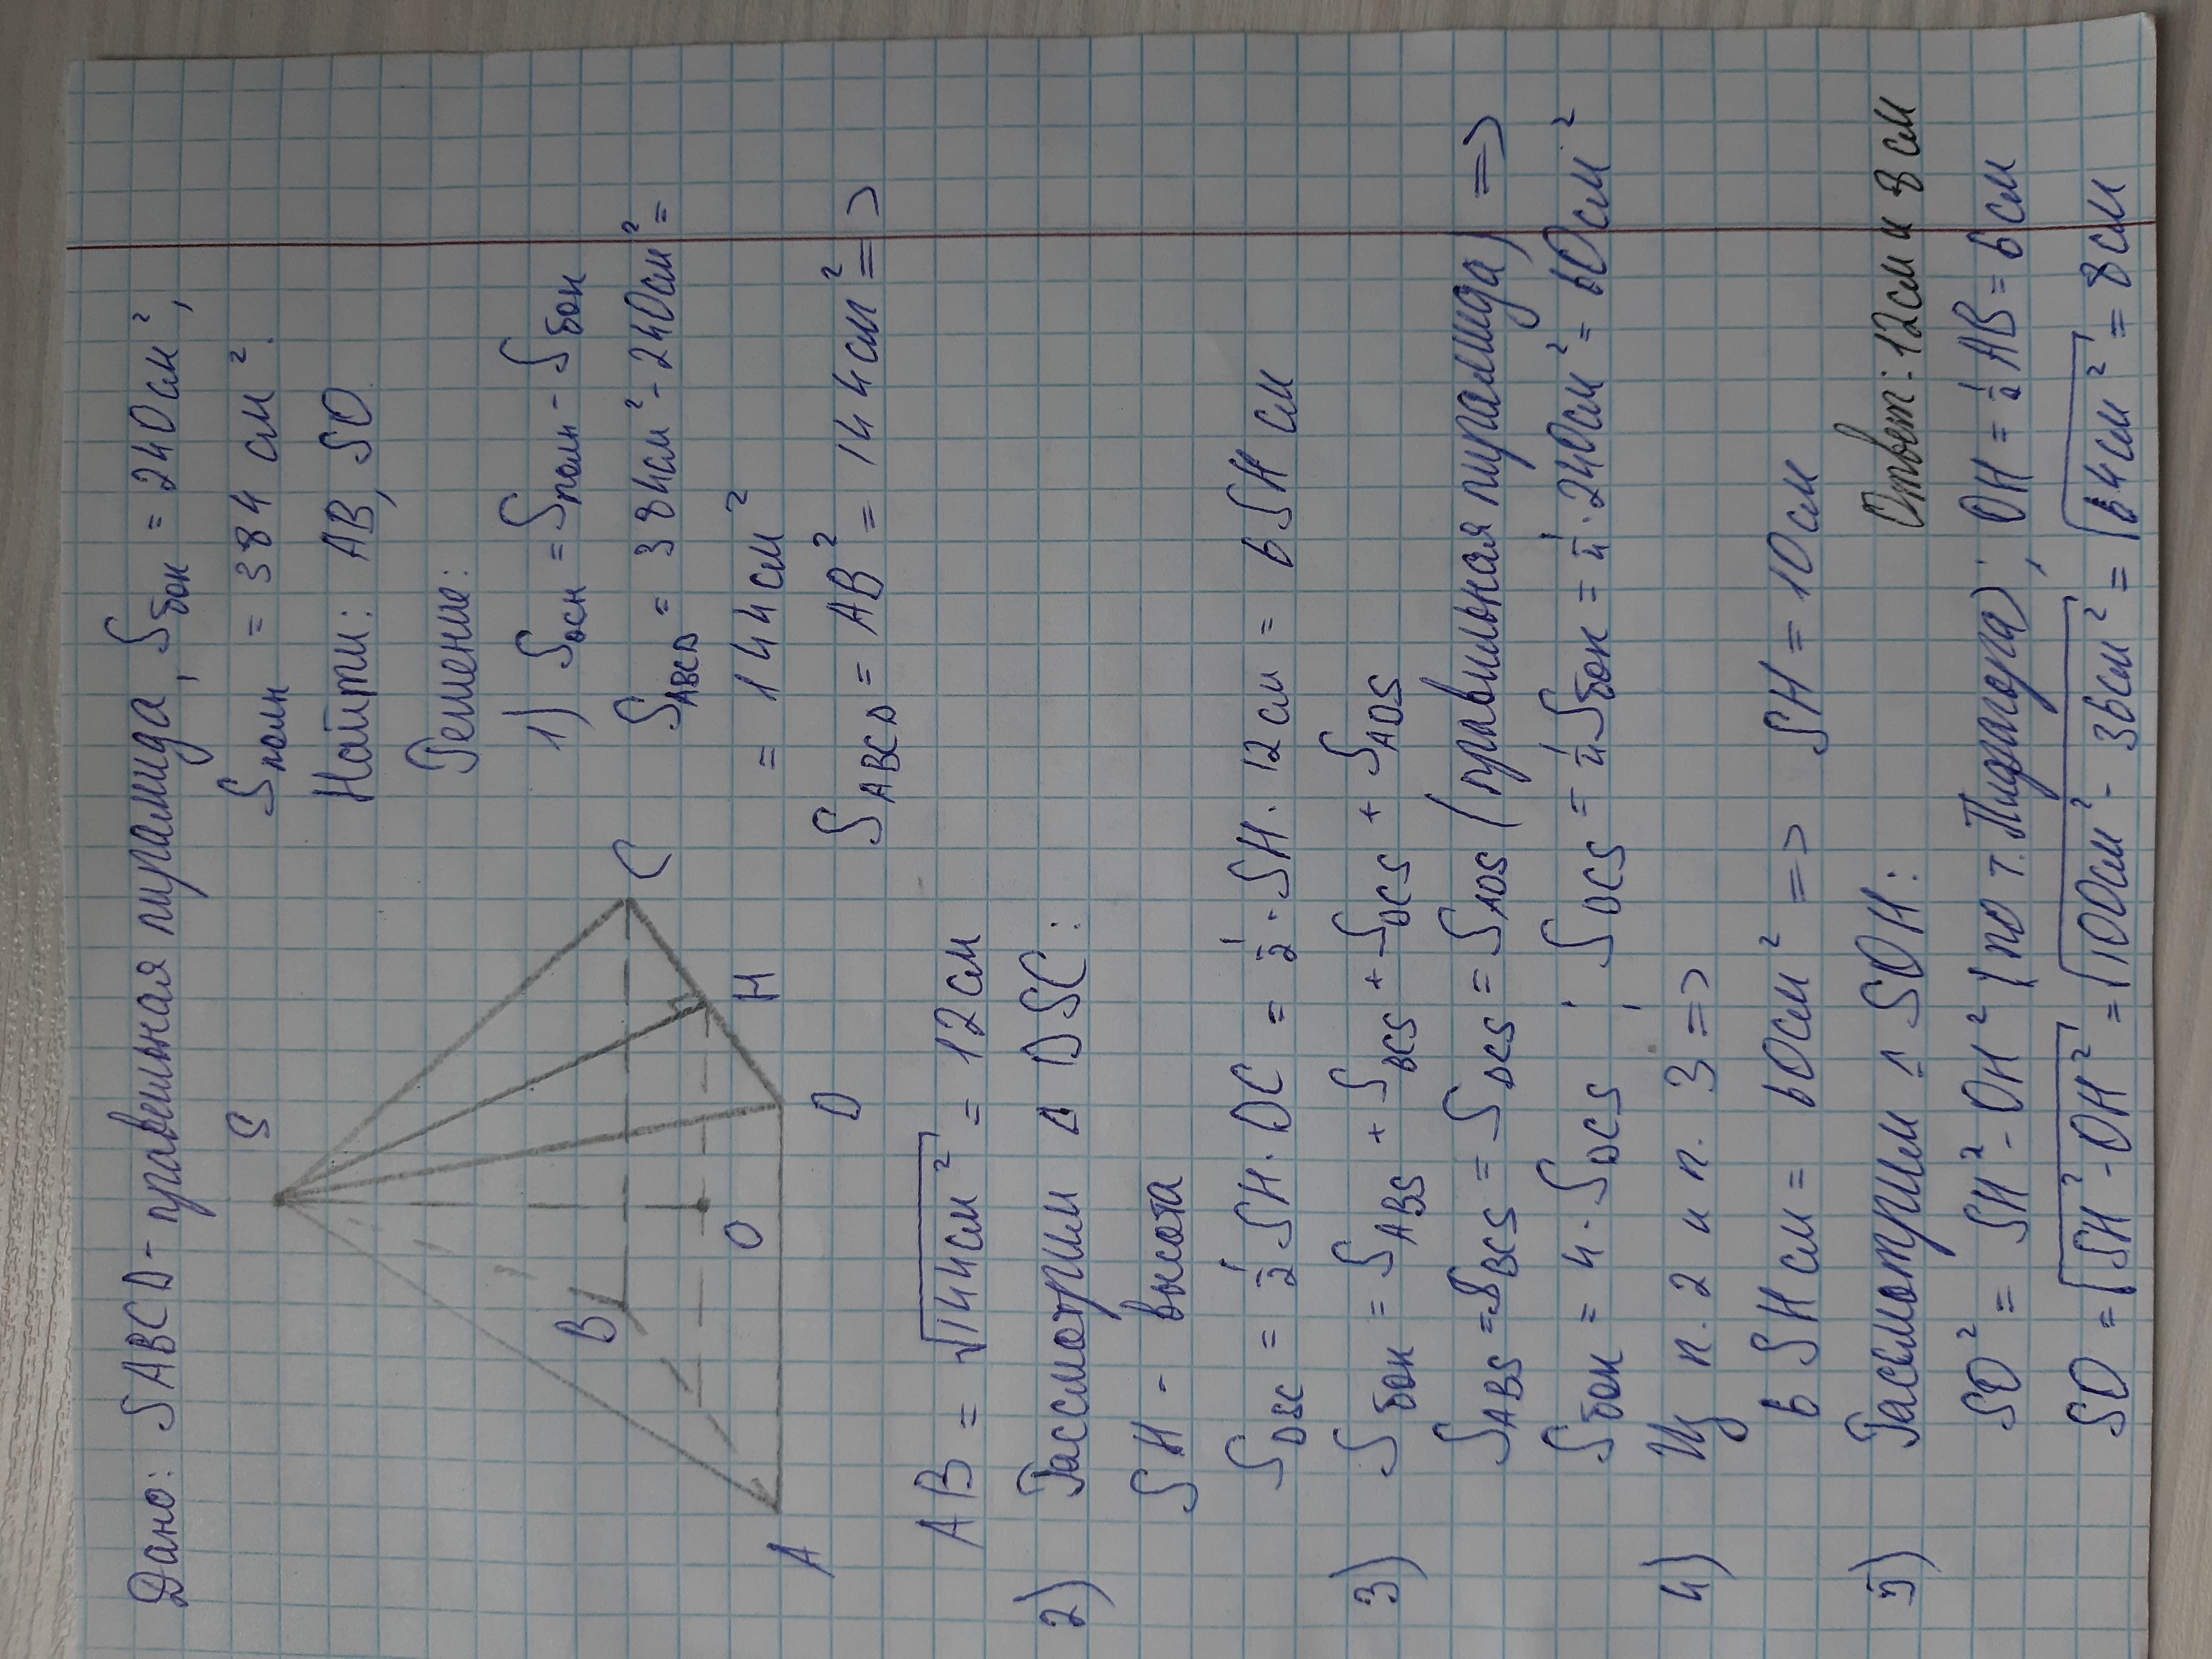 Дано: SABCD - правильная пирамида, Sбок = 240 см²,
Sполн = 384 см².
Найти: AB, SO
Решение:
1) Sосн = Sполн - Sбок
S_ABCD = 384см² - 240см² =
= 144 см²
S_ABCD = AB² = 144 см² =>
S
B
C
O
H
A
D
AB = √144см² = 12 см
2) Рассмотрим △ DSC:
SH - высота
S_DSC = 1/2 SH · DC = 1/2 · SH · 12 см = 6 SH см
3) Sбок = S_ABS + S_BCS + S_DCS + S_ADS
S_ABS = S_BCS = S_DCS = S_ADS (правильная пирамида) =>
Sбок = 4 · S_DCS ; S_DCS = 1/4 Sбок = 1/4 · 240см² = 60см²
4) Из п. 2 и п. 3 =>
6 SH см = 60см² => SH = 10см
Ответ: 12см и 8 см
5) Рассмотрим △ SOH:
SO² = SH² - OH² (по т. Пифагора) ; OH = 1/2 AB = 6 см
SO = √SH² - OH² = √100см² - 36см² = √64см² = 8см